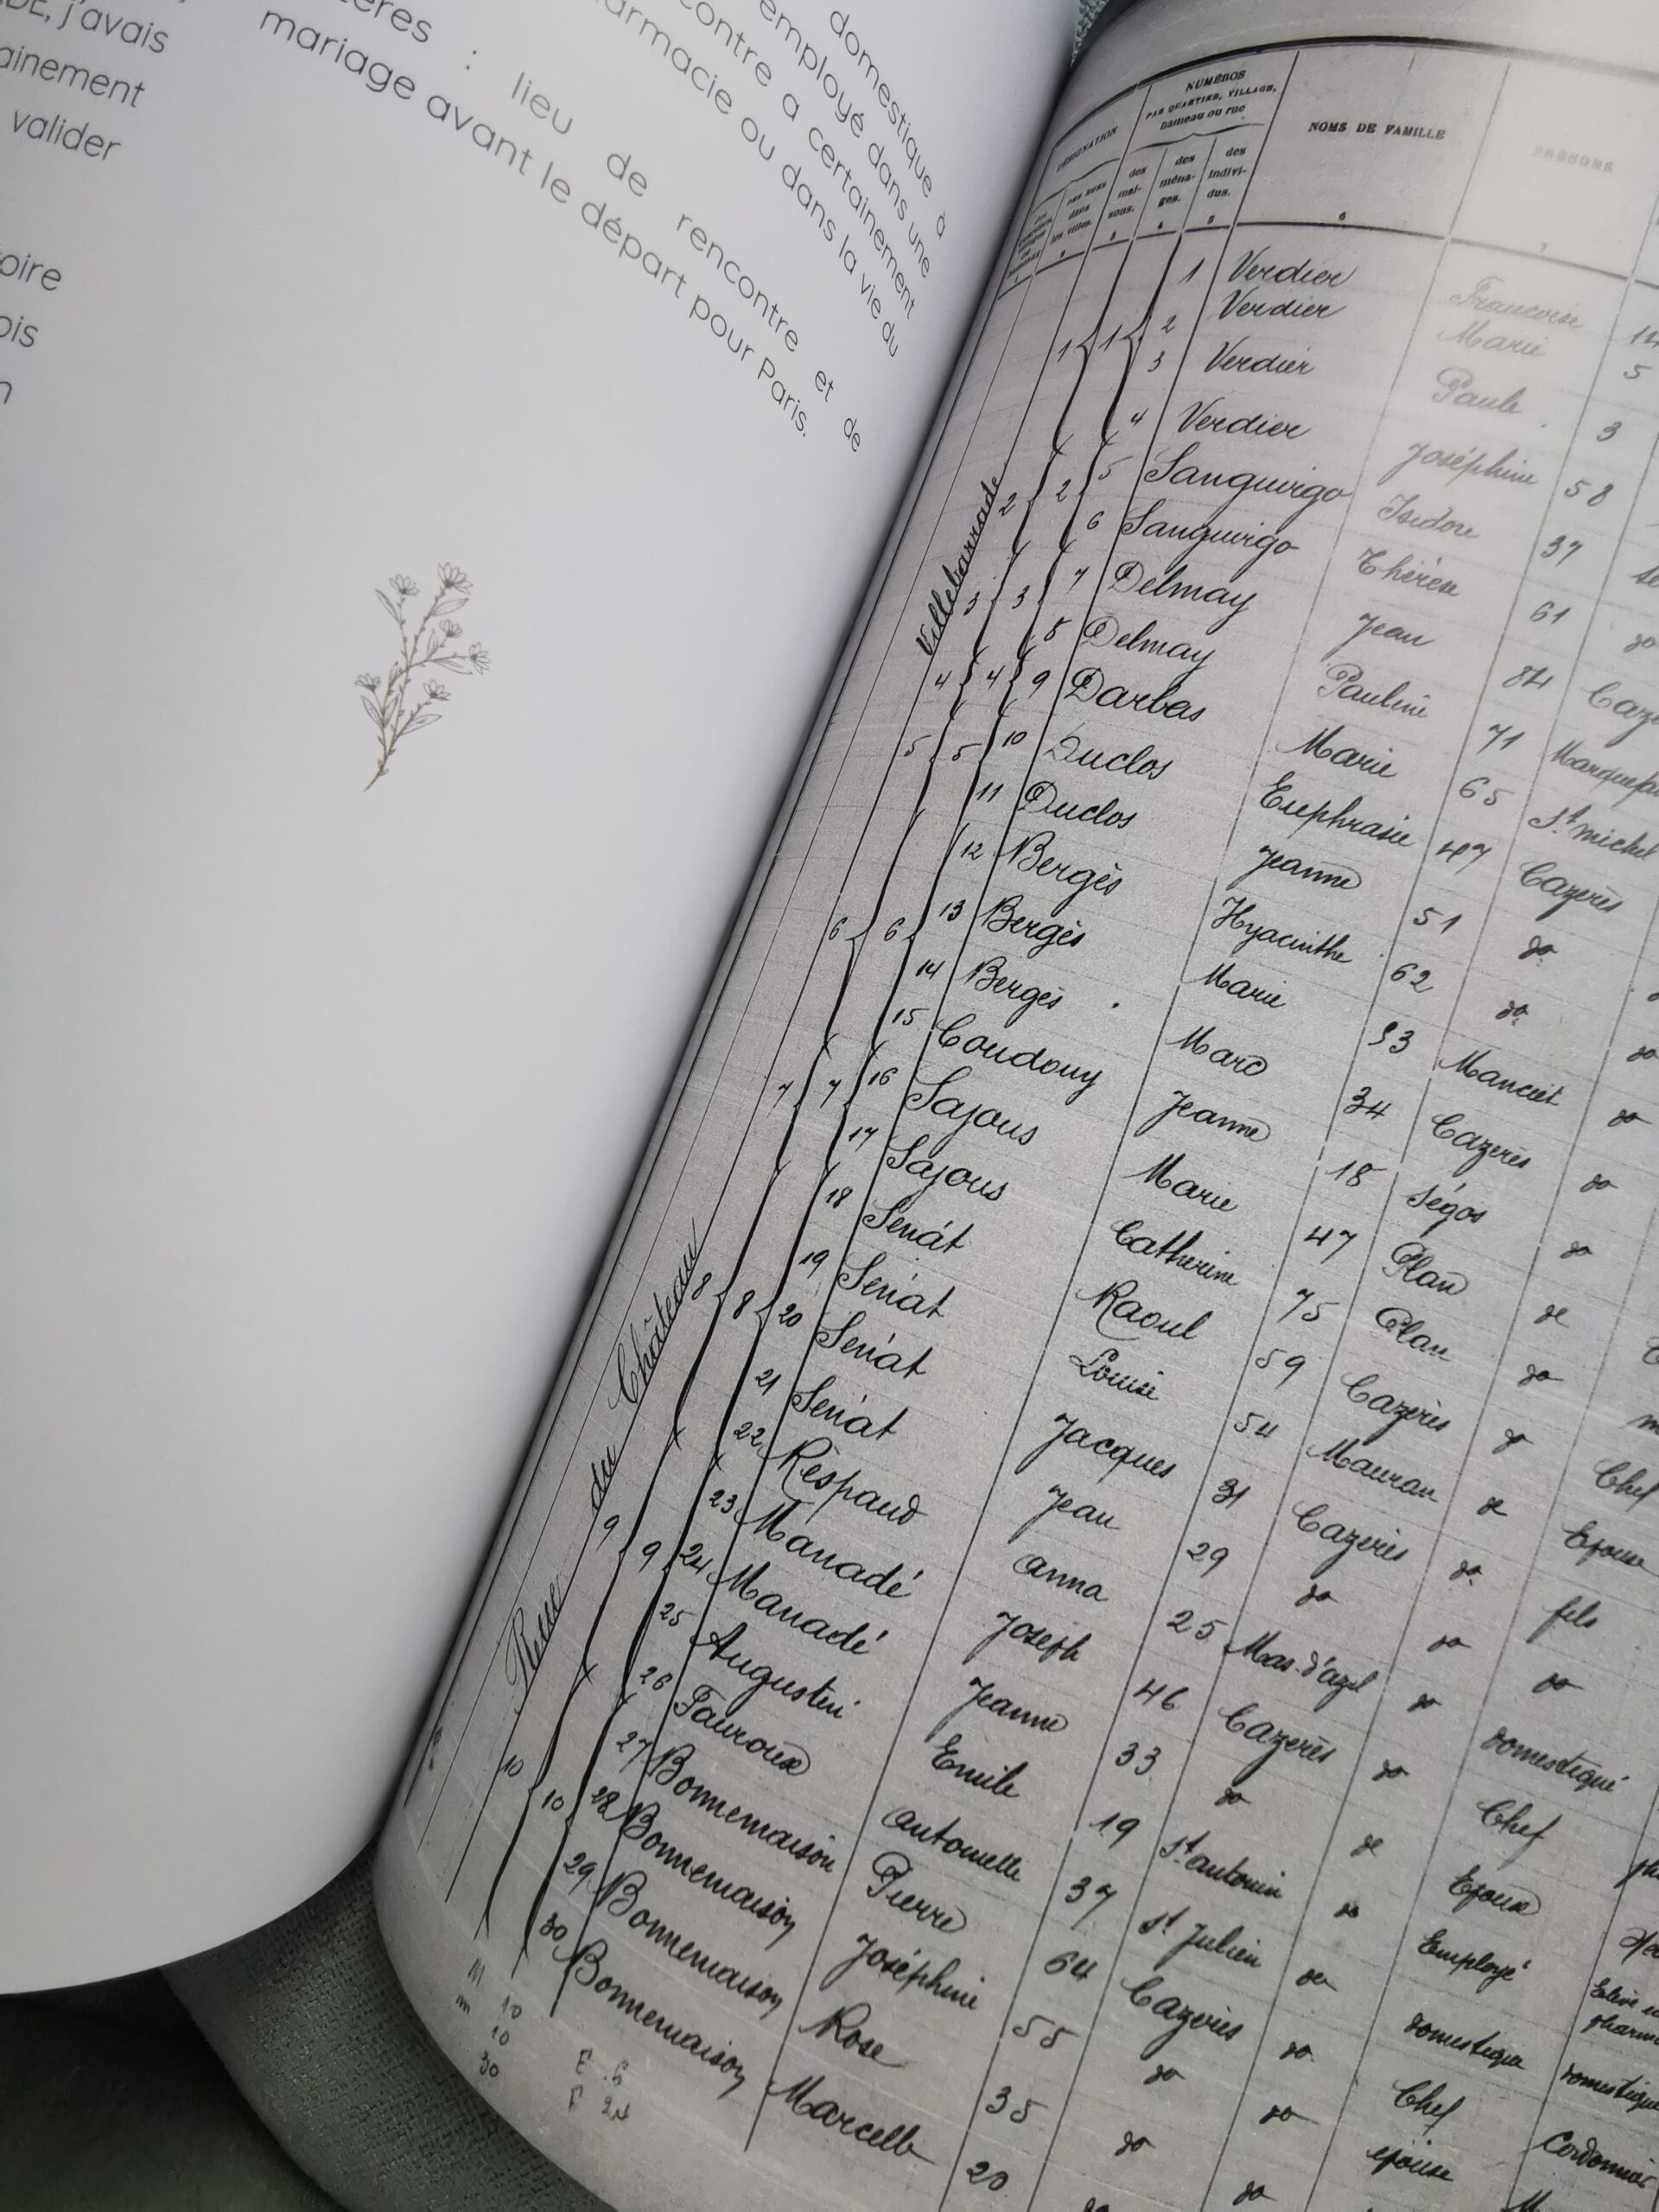 j'avais
ainement
valider
oire
ois
n
lieu de rencontre et de
mariage avant le départ pour Paris.
domestique à
employé dans une
contre a certainement
armacie ou dans la vie du
DÉSIGNATION
NUMÉROS
PAR QUARTIER, VILLAGE,
hameau ou rue
NOMS DE FAMILLE
PRÉNOMS
des mai-sons.
des ména-ges.
des indivi-dus.
3 4 5 6 7
Villebarrade
Rue du Château
1 1 1 Verdier Francoise 14
2 Verdier Marie 5
3 Verdier Paule 3
4 Verdier Joséphine 58
2 2 5 Sanguirgo Isidore 37
6 Sanguirgo Thérèse 61 do
3 3 7 Delmay Jean 84
8 Delmay Pauline 71
4 4 9 Darbas Marie 65 St michel
5 5 10 Duclos Euphrasie 47 Cazerès
11 Duclos Jeanne 51 do
12 Bergès Hyacinthe 62 do do
6 6 13 Bergès Marie 53 Manciet do
14 Bergès Marc 34 Cazerès do
15 Coudouy Jeanne 18 Ségos do
7 7 16 Sajous Marie 47 Plan do
17 Sajous Catherine 75 Plan do
18 Sénat Raoul 59 Cazerès do Chef
8 8 19 Sénat Louise 54 Mauran do Epouse
20 Sénat Jacques 31 Cazerès do fils
21 Sénat Jean 29 do do do
22 Respaud Anna 25 Mas-d'azil do domestique
9 9 23 Manadé Joseph 46 Cazerès do Chef
24 Manadé Jeanne 33 do do Epouse
25 Augustin Emile 19 St antonin do Employé
26 Fauroux Antoinette 37 St Julien do domestique domestique
10 10 27 Bonnemaison Pierre 64 Cazerès do Chef Cordonnier
28 Bonnemaison Joséphine 55 do do épouse
29 Bonnemaison Rose 35 do do
30 Bonnemaison Marcelle 20 do
M 10
m 10
30
F 24